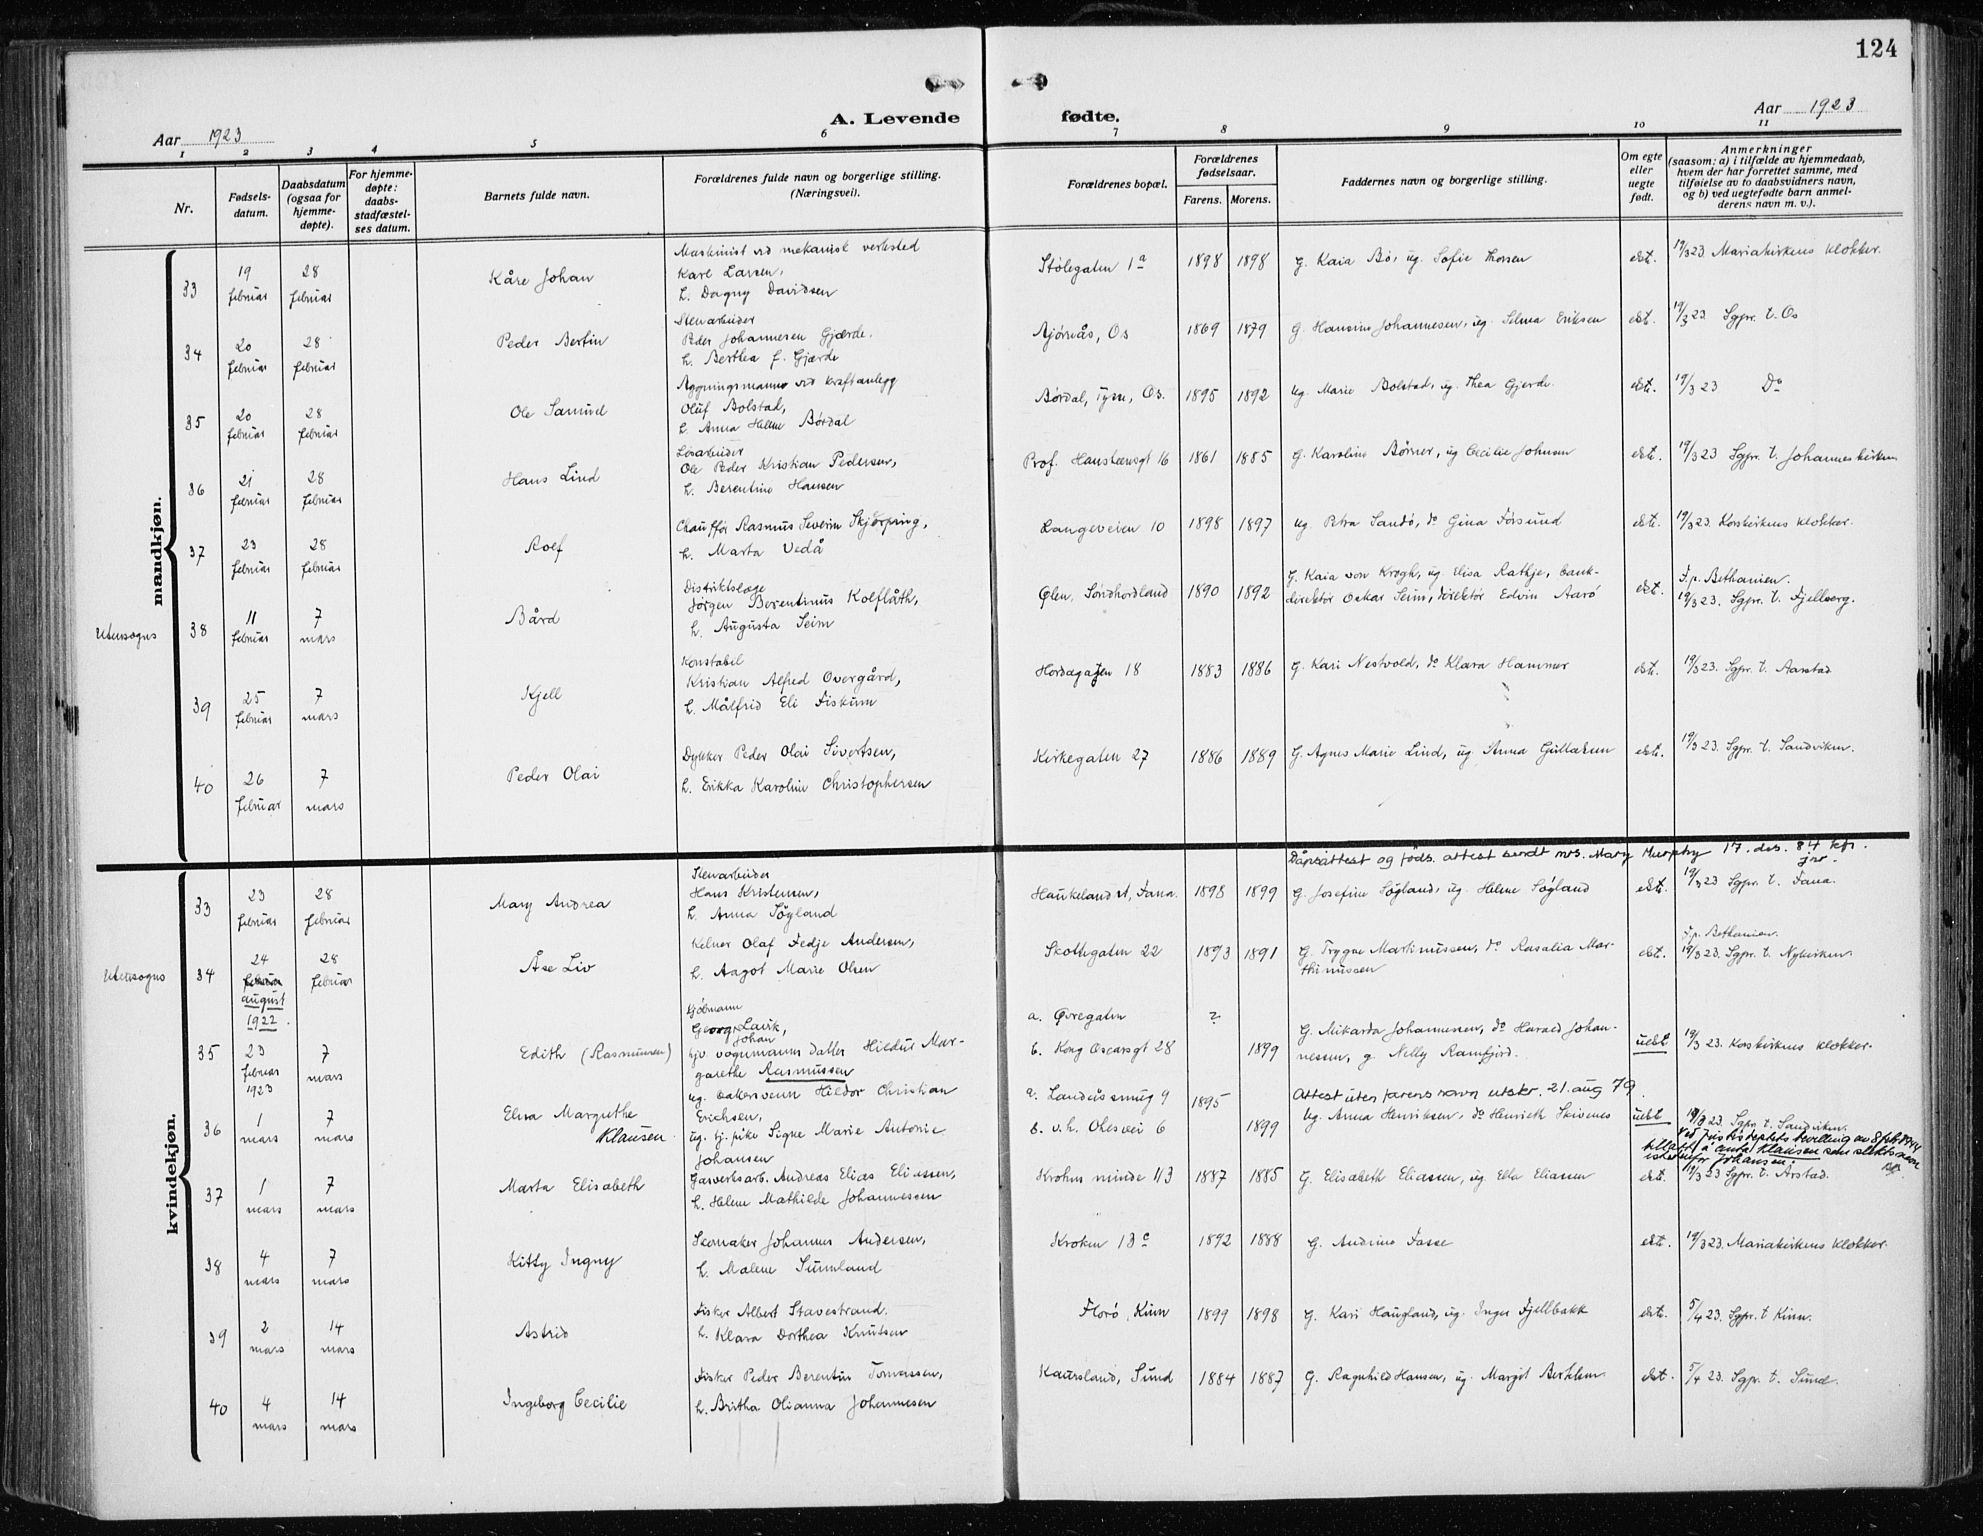 124
A. Levende fødte.
Aar 1923
Aar 1923
1 2 3 4 5 6 7 8 9 10 11
Nr.
Fødsels-
datum.
Daabsdatum
(ogsaa for
hjemme-
døpte).
For hjemme-
døpte:
daabs-
stadfæstel-
ses datum.
Barnets fulde navn.
Forældrenes fulde navn og borgerlige stilling.
(Næringsvei).
Forældrenes bopæl.
Forældrenes
fødselsaar.
Farens. Morens.
Faddernes navn og borgerlige stilling.
Om egte
eller
uegte
født.
Anmerkninger
(saasom: a) i tilfælde av hjemmedaab,
hvem der har forrettet samme, med
tilføielse av to daabsvidners navn,
og b) ved uegtefødte barn anmel-
derens navn m. v.).
mandkjøn.
33 19 februar 28 februar Kåre Johan
Maskinist ved mekanisk verksted
Karl Larsen,
h. Dagny Davidsen
Stølegaten 1a 1898 1898 G. Kaia Bø, ug. Sofie Thorsen ekt. 19/3 23. Mariakirkens klokker.
34 20 februar 28 februar Peder Bertin
Stenarbeider
Peder Johannesen Gjærde.
h. Berthea f. Gjærde
Os 1869 1879 G. Hansine Johannesen, ug. Selma Eriksen ekt. 19/3 23 Sgpr. t. Os
35 20 februar 28 februar Ole Samuel
Oluf Bolstad,
h. Anna Helene Børdal
Børdal, Os. 1895 1892 Ug. Marie Bolstad, ug. Thea Gjerde. ekt. 19/3 23 Do
36 21 februar 28 februar Hans Lind
Løsarbeider
Ole Peder Kristian Pedersen,
h. Berentine Hansen
Prof. Hansteensgt 16 1861 1885 G. Karoline Børner, ug Cecilie Johnsen ekt. 19/3 23 Sgpr. t. Johanneskirken
37 23 februar 28 februar Rolf
Chauffør Rasmus Severin Skjørping,
h. Marta Vedå
Langeveien 10 1898 1897 Ug. Petra Sandø, do Gina Førsund ekt. 19/3 23. Korskirkens klokker.
Utensogns 38 11 februar 7 mars Bård
Distriktslæge
Jørgen Berentinus Kolflåth,
h. Augusta Seim
Ølen, Søndhordland 1890 1892 G. Kaia von Krogh, ug. Elisa Rathje, bank-
direktør Oskar Seim, direktør Edvin Aarø ekt. F.p. Bethanien.
19/3 23. Sgpr. t. Fjellberg.
39 25 februar 7 mars Kjell
Konstabel
Kristian Alfred Overgård,
h. Målfrid Eli Fiskum
Hordagaten 18 1883 1886 G. Kari Nestvold, do Klara Hammer ekt. 19/3 23. Sgpr. t. Aarstad.
40 26 februar 7 mars Peder Olai
Dykker Peder Olai Sivertsen,
h. Erikka Karoline Christophersen
Kirkegaten 27 1886 1889 G. Agnes Marie Lind, ug. Anna Gullaksen ekt. 19/3 23. Sgpr. t. Sandviken.
kvindekjøn.
Dåpsattest og føds. attest sendt mrs. Mary Murphy 17. des. 84
33 23 februar 28 februar Mary Andrea
Stenarbeider
Hans Kristensen,
h. Anna Søyland
Haukeland st, Fana. 1898 1899 G. Josefine Søyland, ug. Helene Søyland ekt. 19/3 23 Sgpr. t. Fana.
Utensogns 34 24 februar august 1922. 28 februar Åse Liv
Kelner Olaf Fedje Andersen,
h. Aagot Marie Olsen
Skottegaten 22 1893 1891 G. Trygve Martinussen, do Rosalia Mar-
thinussen ekt. F.p. Bethanien.
19/3 23. Sgpr. t. Nykirken.
35 23 februar 1923 7 mars Edith (Rasmussen)
Sjømann
Georg Johan Lavik,
vognmanns datter Hildur Mar-
garethe Rasmussen
a. Øvregaten ?
b. Kong Oscarsgt 28 1899 G. Mikarda Johannesen, do Harald Johan-
nessen, g. Nelly Ramfjord. uekt 19/3 23. Korskirkens klokker.
Attest uten farens navn utskr. 21. aug 79.
36 1 mars 7 mars Elna Margrethe Klausen.
ug. bakersvenn Hildor Christian
Erichsen,
ug. tj. pike Signe Marie Antonie
Johansen
a. Landåssmug 9 1895
b. v.h. Olesvei 6 1899 Ug. Anna Henriksen, do Henrich Skivenes uekt 19/3 23. Sgpr. t. Sandviken.
Ved justisdeptets bevilling av
tillatt å anta Klausen som slektsnavn
istedenfor Johansen.
37 1 mars 7 mars Marta Elisabeth
Gasverksarb. Andreas Elias Eliassen,
h. Helene Mathilde Johannessen
Krohnsminde 113 1887 1885 G. Elisabeth Eliassen, ug Ella Eliassen ekt. 19/3 23 Sgpr. t. Årstad.
38 4 mars 7 mars Kitty Ingny
Skomaker Johannes Andersen,
h. Malene Sunnland
Kroken 13c 1892 1888 G. Andrine Fasse ekt. 19/3 23. Mariakirkens klokker.
39 2 mars 14 mars Astrid
Fisker Albert Stavestrand.
h. Klara Dorthea Knutsen
Florø, Kinn 1899 1898 G. Kari Haugland, ug. Inger Fjellbakk ekt. 5/4 23. Sgpr. t Kinn.
40 4 mars 14 mars Ingeborg Cecilie
Fisker Peder Berentin Tomassen,
h. Britha Olianna Johannesen
Kausland, Sund 1884 1887 G. Ragnhild Hansen, ug. Margit ekt. 5/4 23. Sgpr. t. Sund.